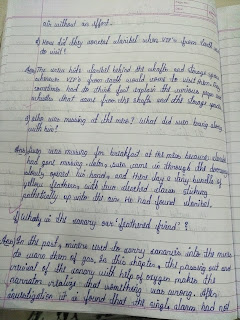 air without an effort.
d) How did they conceal Clarabel when VIP's from Earth came
to visit?
Ans) The miners hide Clarabel behind the shafts and storage spaces
whenever VIP's from Earth would come to visit them. They
sometimes had to think fast explain the various pages and
whistles that came from the shafts and the storage spaces
e) Who was missing at the mess? What did Juan bring along
with him?
Ans) Juan was missing for breakfast at the mess because
had gone missing. Later, Juan came in through the doorway
slowly opened his hand, and there lay a tiny bundle of
yellow feathers, with two clenched claws sticking
pathetically up into the air. He had found Clarabel.
f) Why is the canary our 'feathered friend'?
Ans) In the past, miners used to carry canaries into the mines
to warn them of gas. In this chapter, the passing out and
revival of the canary with help of oxygen makes the
narrator realize that something was wrong. After
investigation it is found that the single alarm had not